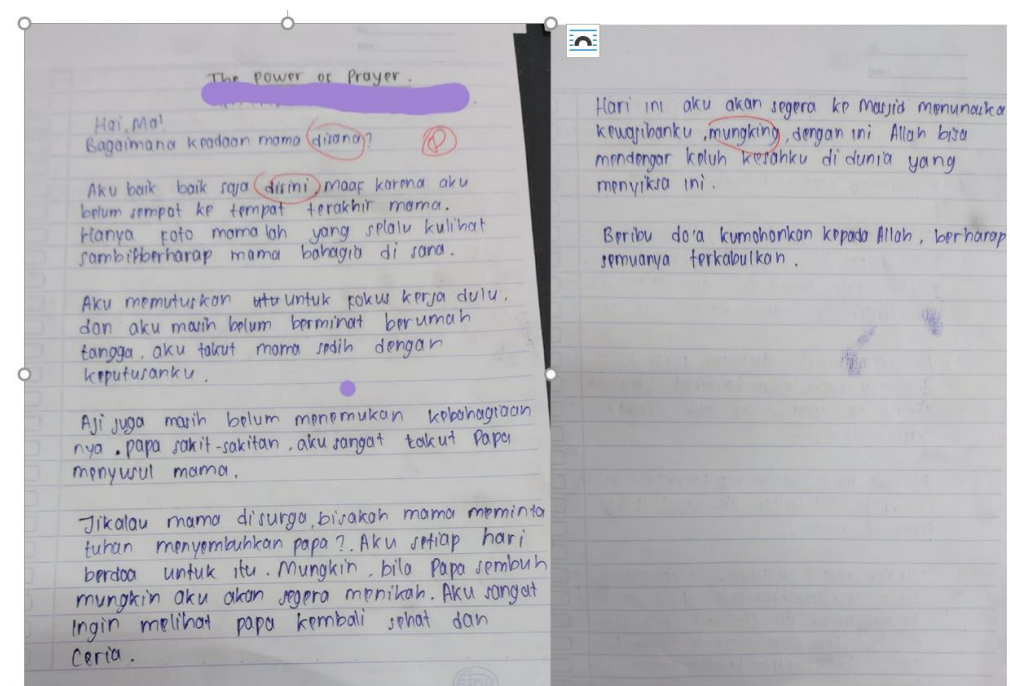 The Power of Prayer.
Hai, Ma!
Bagaimana keadaan mama disana?
Aku baik baik saja disini, maaf karena aku
belum sempat ke tempat terakhir mama.
Hanya foto mama lah yang selalu kulihat
sambil berharap mama bahagia di sana.
Aku memutuskan utu untuk fokus kerja dulu,
dan aku masih belum berminat berumah
tangga, aku takut mama sedih dengan
keputusanku.
Aji juga masih belum menemukan kebahagiaan
nya. papa sakit-sakitan, aku sangat takut Papa
menyusul mama.
Jikalau mama disurga, bisakah mama meminta
tuhan menyembuhkan papa?. Aku setiap hari
berdoa untuk itu. Mungkin, bila Papa sembuh
mungkin aku akan segera menikah. Aku sangat
Ingin melihat papa kembali sehat dan
Ceria.
Hari ini aku akan segera ke Masjid menunaika
kewajibanku, mungking, dengan ini Allah bisa
mendengar keluh kesahku di dunia yang
menyiksa ini.
Beribu do'a kumohonkan kepada Allah, berharap
semuanya terkabulkan.